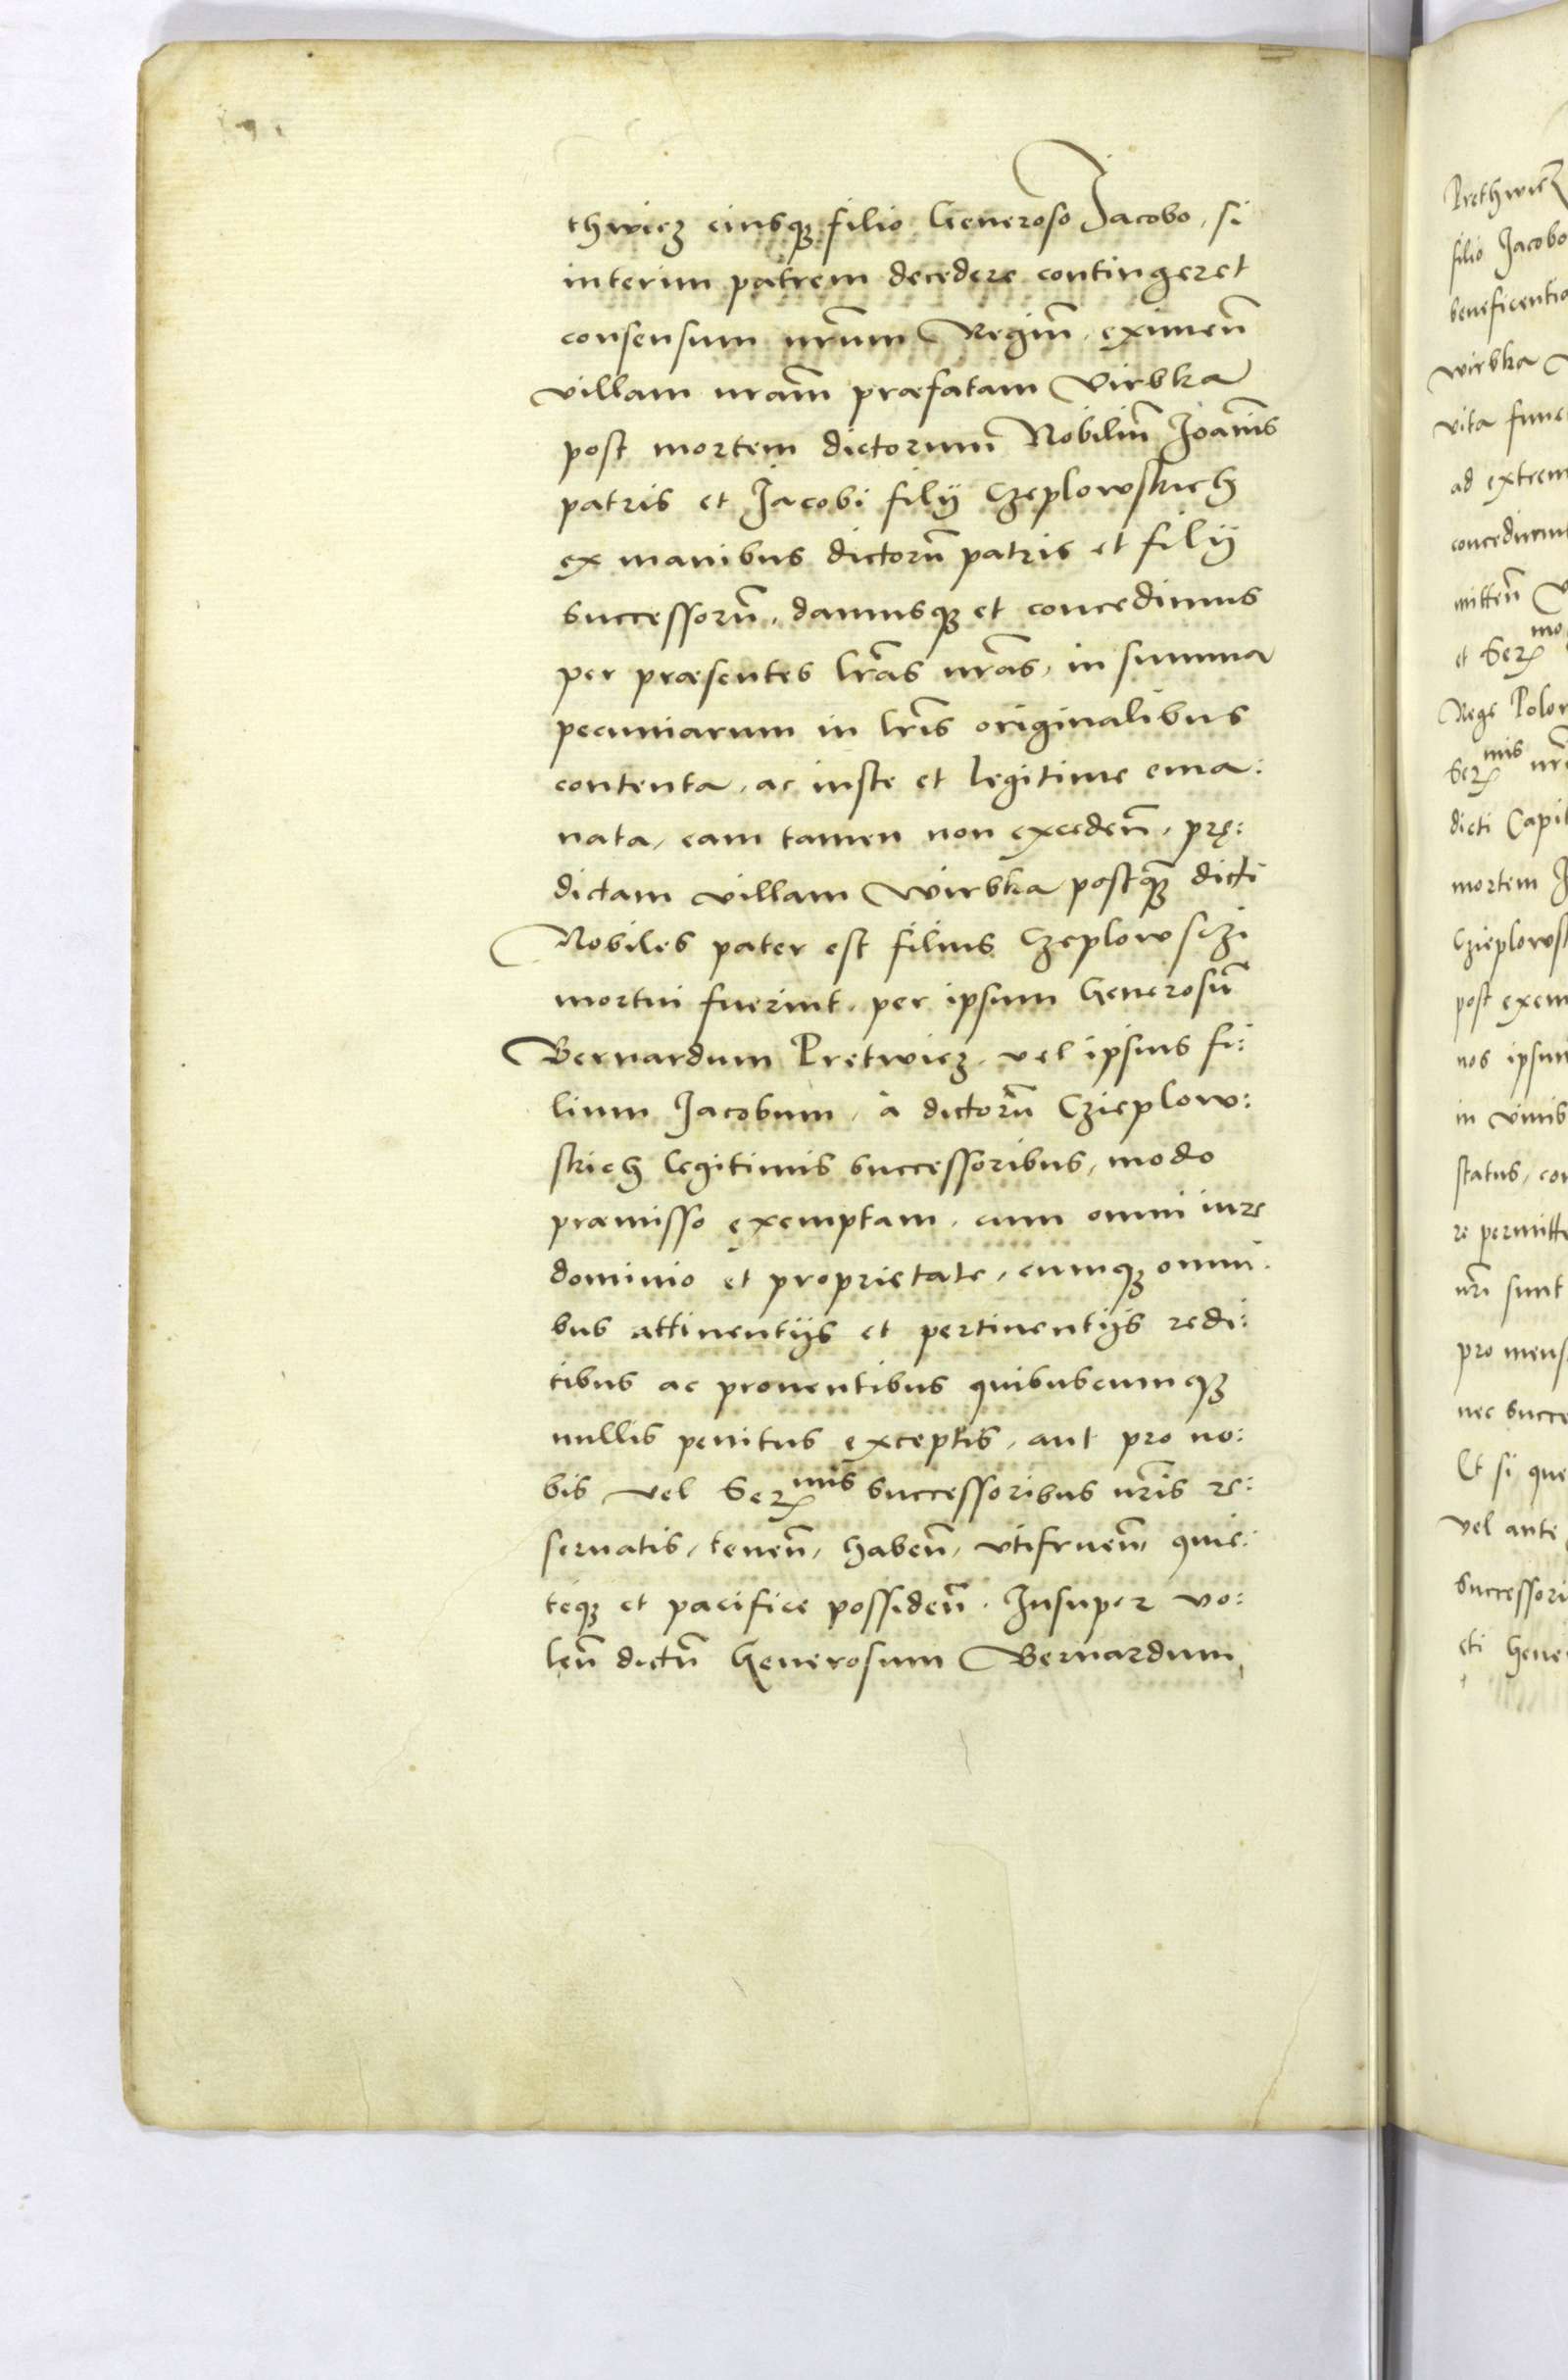 thwicz eiusqꝫ filio Generoso Jacobo, si
interim patrem decedere contingeret
consensum nr̃um Regiũ, eximeñ
villam nrãm præfatam Virbka
post mortem dictorum Nobiliũ Joañis
patris et Jacobi filij Czeplowskich
ex manibus dictorũ patris et filij
successorũ, damusqꝫ et concedimus
per præsentes lr̃as nrãs, in summa
pecuniarum in lr̃is originalibus
contenta, ac iuste et legitime ema:
nata, eam tamen non excedeñ, prę:
dictam villam Wirbka postqꝫ dicti
Nobiles pater est filius Czeplowsczi
mortui fuerint, per ipsum Generosũ
Bernardum Pretwicz, vel ipsius fi:
lium Jacobum, à dictorũ Czieplow:
skich legitimis successoribus, modo
præmisso exemptam, cum omni iure
dominio et proprietate, cumqꝫ omni:
bus attinentijs et pertinentijs redi:
tibus ac prouentibus quibuscumqꝫ
nullis penitus exceptis, aut pro no:
bis vel Ser^mis successoribus nr̃is re:
seruatis, teneñ, habeñ, vtifrueñ, quie:
teqꝫ et pacifice possideñ. Insuper vo:
leñ dictũ Generosum Bernardum
Prethwicz
filio Jacobo
beneficentia
Wirbka
vita func
ad extrem
concedimu
mitteñ
et Ser^mo
Rege Polon
Ser^mis nr̃
dicti Capit
mortem J
Czieplowsk
post exem
nos ipsum
in viuis
status, con
re permitte
nr̃i sunt
pro mens
nec succe
Et si que
vel ante
successori
cti Gene